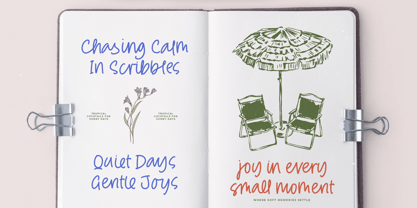 Chasing Calm
In Scribbles
TROPICAL
COCKTAILS FOR
SUNNY DAYS
TROPICAL
COCKTAILS FOR
SUNNY DAYS
Quiet Days
Gentle Joys
joy in every
small moment
WHERE SOFT MEMORIES SETTLE